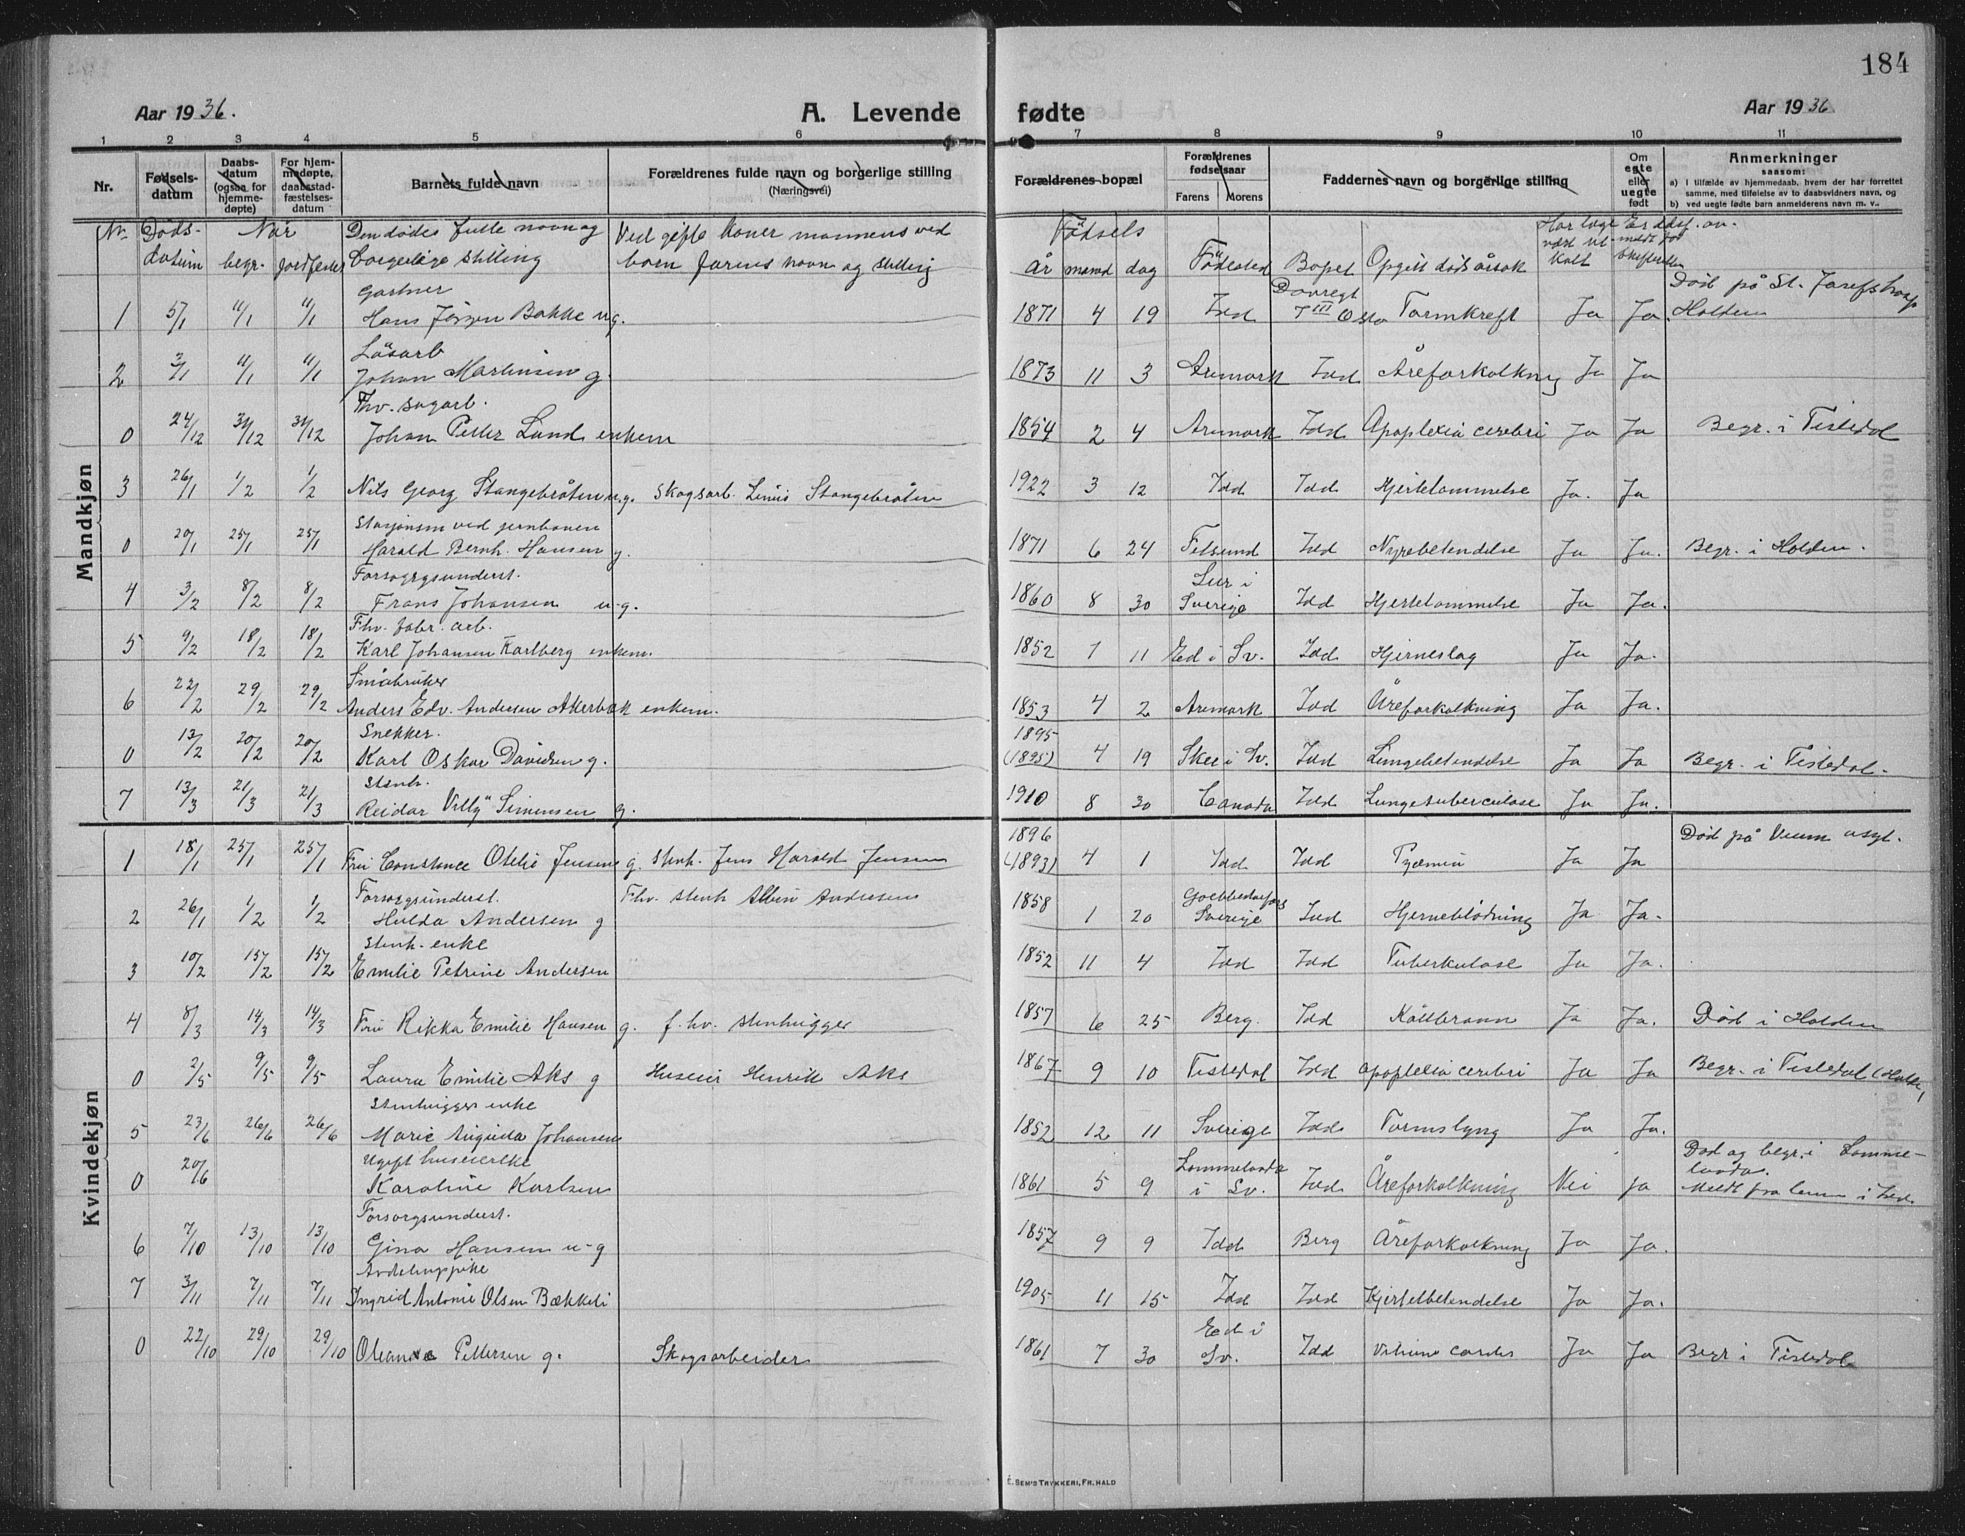 184
Aar 1936. A. Levende fødte Aar 1936
1 2 3 4 5 6 7 8 9 10 11
Nr. Fødsels-datum Daabs-datum (ogsaa for hjemme-døpte) For hjem-medøpte, daabsstad-fæstelses-datum Barnets fulde navn Forældrenes fulde navn og borgerlige stilling (Næringsvei) Forældrenes bopæl Forældrenes fødselsaar Farens Morens Faddernes navn og borgerlige stilling Om egte eller uegte født Anmerkninger saasom:
a) I tilfælde av hjemmedaab, hvem der har forrettet samme, med tilføielse av to daabsvidners navn, og
b) ved uegte fødte barn anmelderens navn m. v..
Nr. Døds- Når Den dødes fulle navn og Ved gifte koner mannens ved Fødsels Har læge Er ddsf. an-
datum begr. jordfestet borgerlige stilling barn farens navn og stilling år maned dag Fødested Bopel Opgitt dødsårsak vært til-kalt meldt for skifteretten
Mandkjøn
Gartner Død på St. Josefs hosp
1 5/1 11/1 11/1 Hans Jørgen Bakke ug. 1871 4 19 Idd Tarmkreft Ja Ja. Halden
Løsarb
2 3/1 11/1 11/1 Johan Martinsen g. 1873 11 3 Aremark Idd Åreforkalkning Ja Ja
Fhv. sagarb.
0 24/12 31/12 31/12 Johan Petter Lund enkem 1854 2 4 Aremark Idd Apoplexia cerebri Ja Ja Begr. i Tistedal
3 26/1 1/2 1/2 Nils Georg Stangebråten u.g. Skogsarb. Linus Stangebråten 1922 3 12 Idd Idd Hjertelammelse Ja. Ja
Stasjonsm ved jernbanen
0 20/1 25/1 25/1 Harald Bernh. Hansen g. 1871 6 24 Idd Nyrebetendelse Ja Ja. Begr. i Halden.
Forsorgsunderst. Lur i
4 3/2 8/2 8/2 Frans Johansen u-g. 1860 8 30 Sverige Idd Hjertelammelse Ja Ja.
Fhv. fabr. arb.
5 9/2 18/2 18/2 Karl Johansen Karlberg enkem. 1852 7 11 Ed i Sv. Idd Hjerneslag Ja Ja.
Småbruker
6 22/2 29/2 29/2 Anders Edv. Andersen Akerbæk enkem. 1853 4 2 Aremark Idd Åreforkalkning Ja Ja.
Snekker. 1895
0 13/2 20/2 20/2 Karl Oskar Davidsen g. (1895) 4 19 Skee i Sv. Idd Lungebetendelse Ja Ja Begr. i Tistedal.
Stenh.
7 13/3 21/3 21/3 Reidar "Villy" Simensen g. 1910 8 30 Canada Idd Lungetuberculose Ja Ja.
Kvindekjøn
1896 Død på Veum asyl.
1 18/1 25/1 25/1 Fru Constance Otelie Jensen g. Stenh. Jens Harald Jensen (1893) 4 1 Idd Idd Pyæmia Ja Ja
Forsorgsunderst. Fhv. stenh Albin Andersen
2 26/1 1/2 1/2 Hulda Andersen g 1858 1 20 Sverige Idd Hjerneblødning Ja Ja.
Stenh. enke
3 10/2 15/2 15/2 Emilie Petrine Andersen 1852 11 4 Idd Idd Tuberkulose Ja Ja.
4 8/3 14/3 14/3 Fru Rikka Emilie Hansen g. f. hv. stenhugger 1857 6 25 Berg. Idd Koldbrann Ja Ja. Død i Halden
0 2/5 9/5 9/5 Laura Emilie Aks g Huseier Henrik Aks 1867 9 10 Tistedal Idd apoplexia cerebri Ja Ja Begr. i Tistedal
Stenhugger enke
5 23/6 26/6 26/6 Marie Auguda Johansen 1852 12 11 Sverige Idd Tarmslyng Ja Ja.
Ugift huseierske Lommelanda Død og begr. i Lomme-
0 20/6 Karoline Karlsen 1861 5 9 i Sv. Idd Åreforkalkning Nei Ja landa. Meldt fra lensm i Idd.
Forsorgsunderst.
6 7/10 13/10 13/10 Gina Hansen u-g 1857 9 9 Idd Berg Åreforkalkning Ja Ja.
7 3/11 7/11 7/11 Ingrid Antonie Olsen Bækkeli 1905 11 15 Idd Idd Hjertebetendelse Ja Ja.
Ed i
0 22/10 29/10 29/10 Oleanna Pettersen g. Skogsarbeider 1861 7 30 Sv. Idd Vitium cordis Ja Ja Begr i Tistedal
E. SEM'S TRYKKERI, FR. HALD